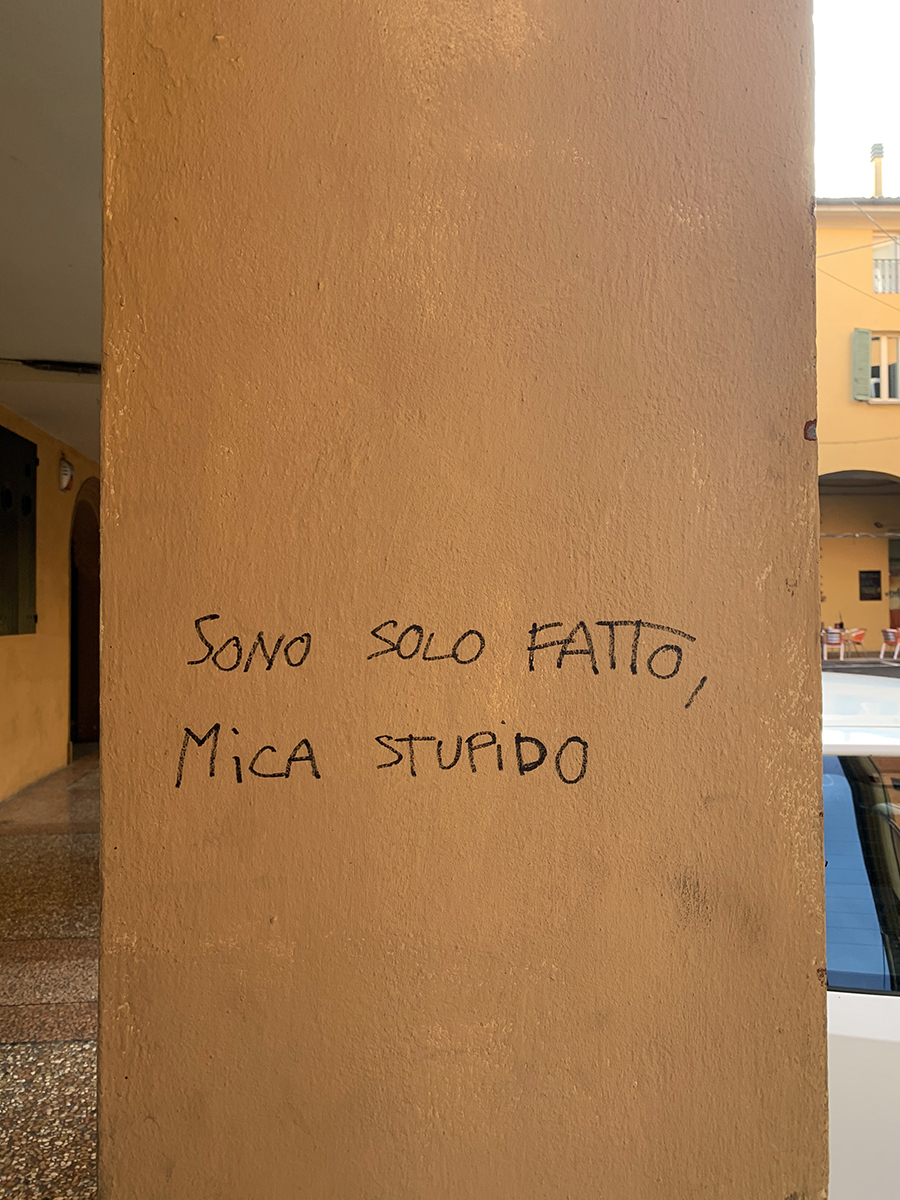 SONO SOLO FATTO,
MiCA STUPiDO